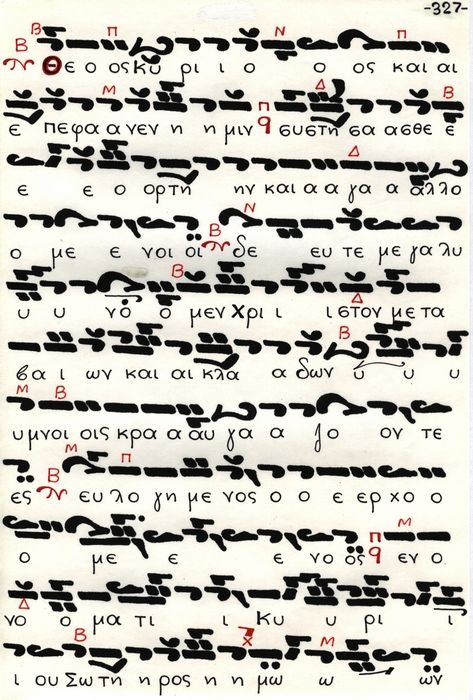 -327-
Β Π Ν Π
Β Θε ο ος Κυ ρι ι ο ο ος και αι
Μ Δ Β
ε πε φα α νεν η η μιν Π q συστη σα ασθε ε
Δ
ε ε ο ορτη ην και α α γα α αλλο
Ν
ο με ε νοι οι Β δε ευ τε με γα λυ
Β Δ
υ υ νο ο μεν Χρι ι ιστον με τα
Β
βα ι ων και αι κλα α δων υ υ υ
Μ Β
υμνοι οις κρα α αυ γα α ζο ον τε
Μ Π
ες Β ευ λο γη με νος ο ο ε ερ χο ο
Μ
ο με ε ε ε νο ος Π q εν ο
Δ
νο ο μα τι ι Κυ υ ρι ι
Β χ Μ
ι ου Σω τη η ρος η η μω ω ων